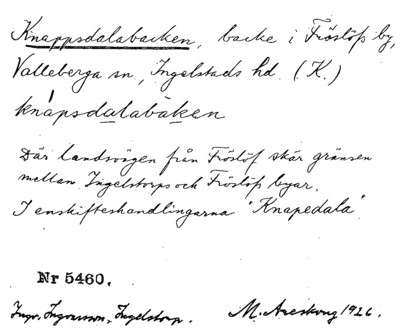 Knappsdalabacken, backe i Fröslöfs by,
Valleberga sn, Ingelstads hd. (K.)
knápsdalabäken
Där landsvägen från Fröslöf skär gränsen
mellan Ingelstorps och Fröslöfs byar.
I enskifteshandlingarna "Knapedala".
Nr 5460.
Ingv. Ingvarsson, Ingelstorp. M. Areskoug 1926.